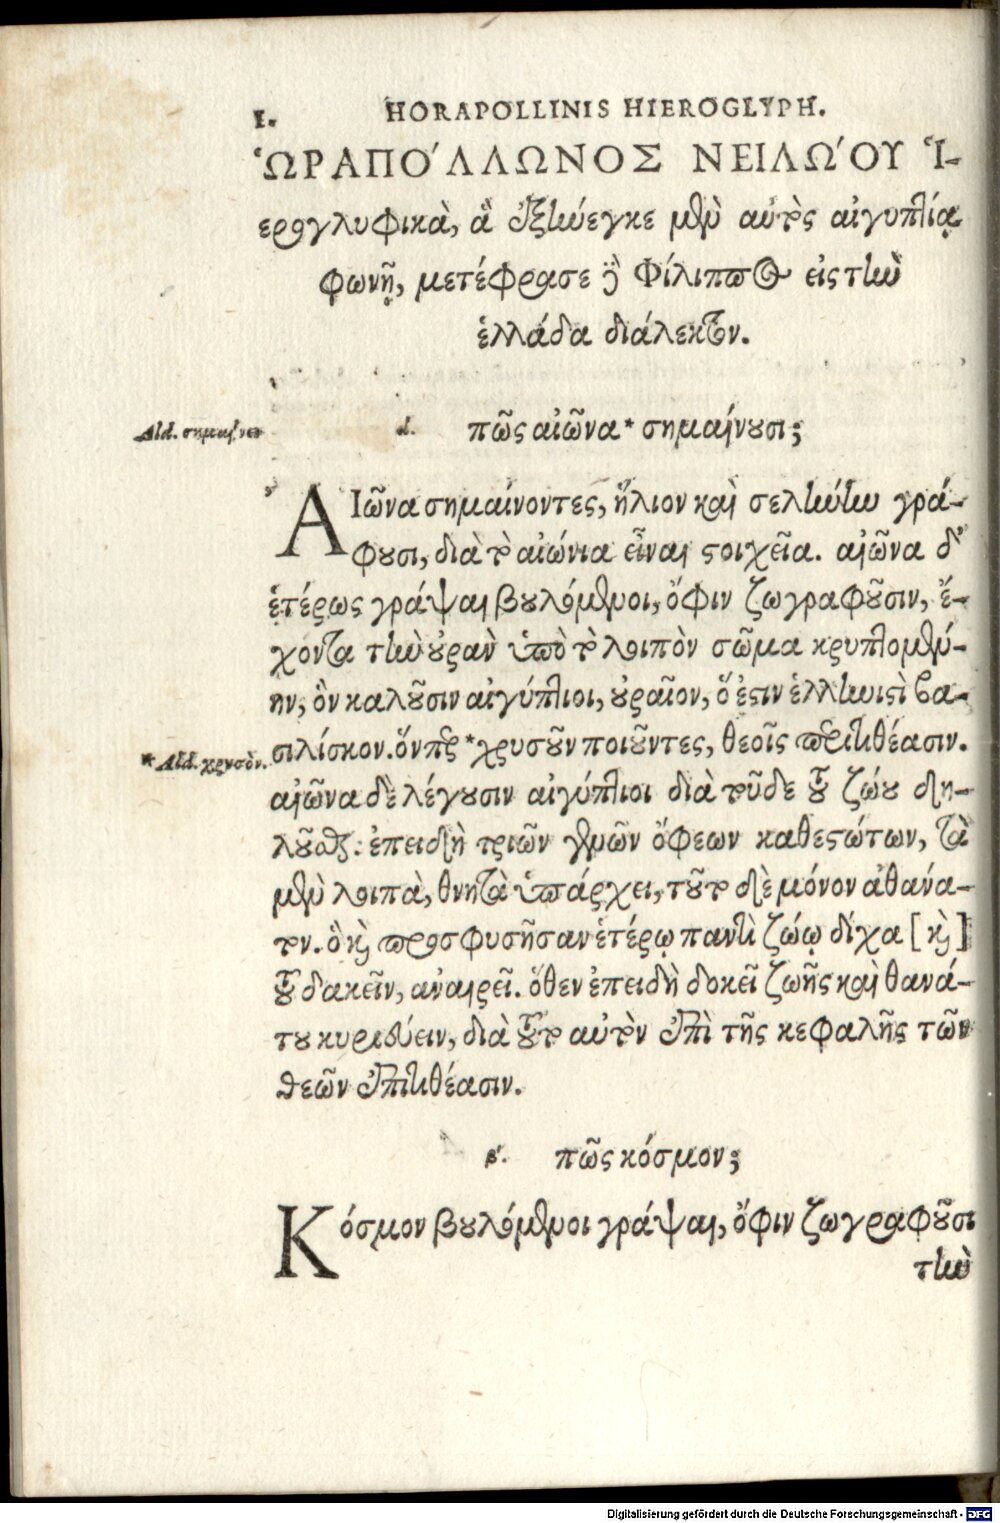 1. HORAPOLLINIS HIEROGLYPH.
ὩΡΑΠΌΛΛΩΝΟΣ ΝΕΙΛΏΟΥ Ἱ-
ερογλυφικὰ, ἃ ἐξήνεγκε μὲν αὐτὸς αἰγυπτίᾳ
φωνῇ, μετέφρασε δὲ Φίλιππος εἰς τὴν
ἑλλάδα διάλεκτον.
Ald. σημαίνει
α. πῶς αἰῶνα* σημαίνουσι;
ΑἸῶνα σημαίνοντες, ἥλιον καὶ σελήνην γρά-
φουσι, διὰ τὸ αἰώνια εἶναι στοιχεῖα. αἰῶνα δ᾽
ἑτέρως γράψαι βουλόμενοι, ὄφιν ζωγραφοῦσιν, ἔ-
χοντα τὴν οὐρὰν ὑπὸ τὸ λοιπὸν σῶμα κρυπτομέν-
ην, ὃν καλοῦσιν αἰγύπτιοι, οὐραῖον, ὅ ἐστιν ἑλληνιστὶ βα-
σιλίσκον. ὅνπερ *χρυσοῦν ποιοῦντες, θεοῖς περιτιθέασιν.
* Ald. χρυσὸν.
αἰῶνα δὲ λέγουσιν αἰγύπτιοι διὰ τοῦδε τοῦ ζώου δη-
λοῦσθαι: ἐπειδὴ τριῶν γενῶν ὄφεων καθεστώτων, τὰ
μὲν λοιπὰ, θνητὰ ὑπάρχει, τοῦτο δὲ μόνον ἀθάνα-
τον. ὃ καὶ προσφυσῆσαν ἑτέρῳ παντὶ ζώῳ δίχα [καὶ]
τοῦ δακεῖν, ἀναιρεῖ. ὅθεν ἐπειδὴ δοκεῖ ζωῆς καὶ θανά-
του κυριεύειν, διὰ τοῦτο αὐτὸν ἐπὶ τῆς κεφαλῆς τῶν
θεῶν ἐπιτιθέασιν.
β'. πῶς κόσμον;
Κόσμον βουλόμενοι γράψαι, ὄφιν ζωγραφοῦσι
τὴν
Digitalisierung gefördert durch die Deutsche Forschungsgemeinschaft - DFG